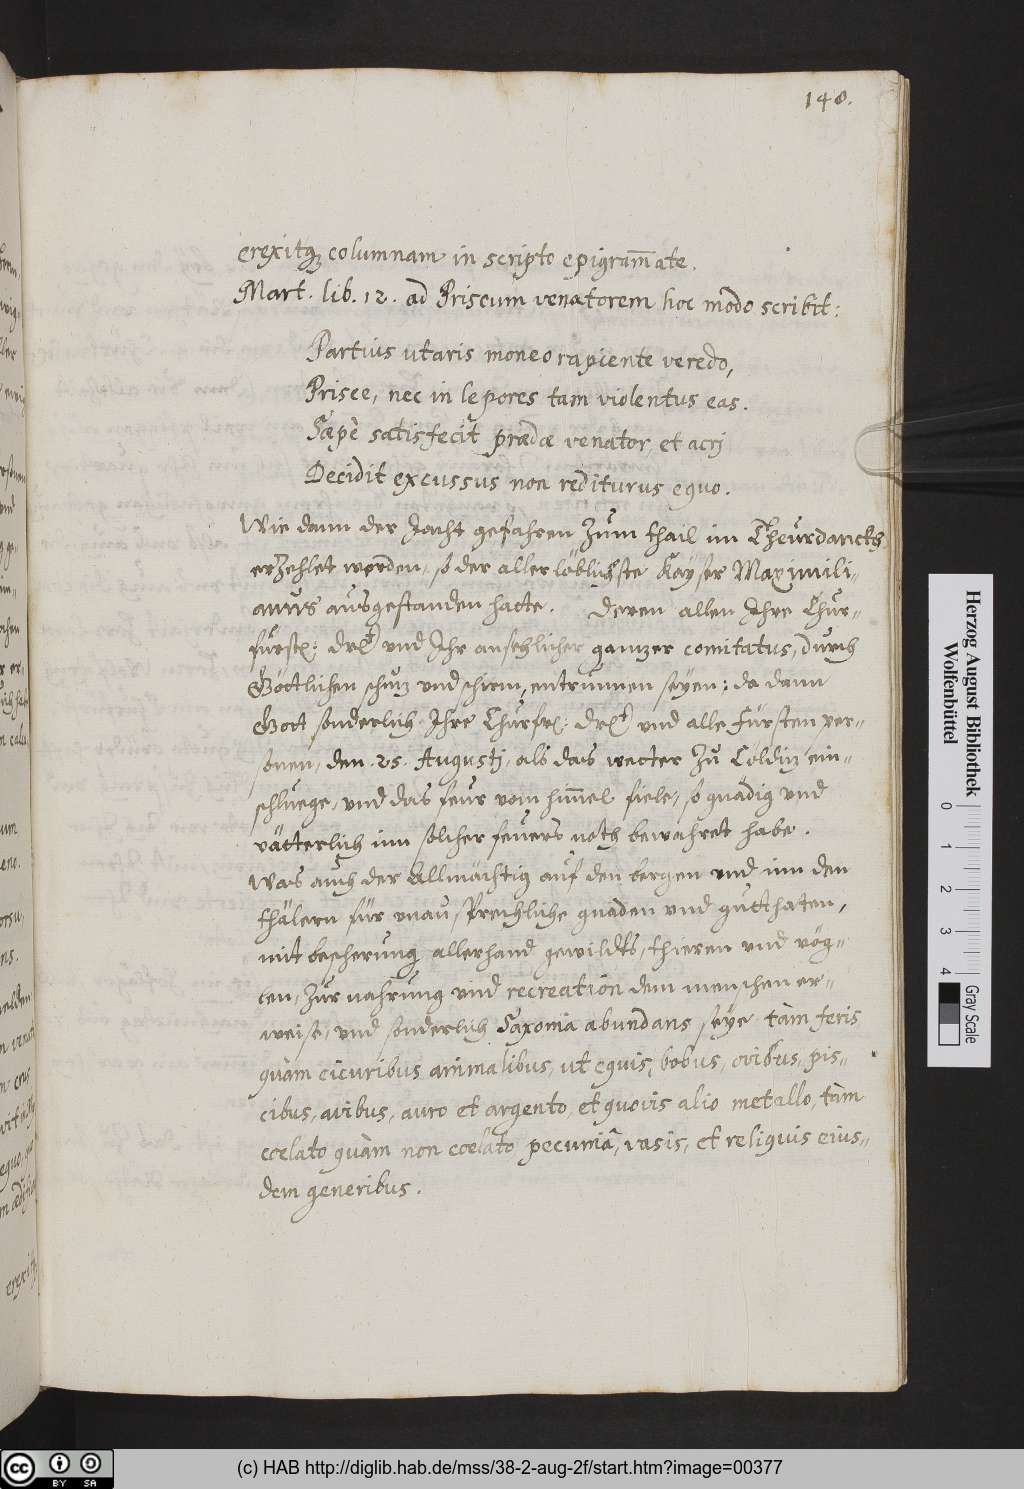 148.
erexitq₃ columnam in scripto epigram̄ate.
Mart. lib. 12. ad Priscum venatorem hoc modo scribit:
Partius utaris moneo rapiente veredo,
Prisce, nec in lepores tam violentus eas.
Sæpè satisfecit prædæ venator, et acrj
Decidit excussus non rediturus equo.
Wie dann der Jacht gefahren zum thail im Theurdanckh
erzehlet worden, so der aller löblichste Kayser Maximili-
anus ausgestanden hatte. Deren allen Ihre Chur-
fürstl: drlt und Ihr ansehlicher ganzer comitatus, durch
Göttlichen schuz und schirm, entrunnen seyen: da dann
Gott sonderlich Ihre Churfrl: drlt und alle Fürsten per-
sonen, den .25. Augustj, als das wetter zu Coldiz ein-
schluege, und das feur vom him̄el fiele, so gnädig und
vätterlich inn solcher feuers noth bewahret habe.
Was auch der Allmächtig auf den bergen und inn den
thälern für unaussprechliche gnaden und gutthaten,
mit bescherung allerhand gewildts, thieren und vög-
len, zur nahrung und recreation dem menschen er-
weise, und sonderlich Saxonia abundans seye tàm feris
quàm cicuribus animalibus, ut equis, bobus, ovibus, pis-
cibus, avibus, auro et argento, et quovis alio metallo, tàm
cœlato quàm non cœlato, pecuniâ, vasis, et reliquis eius-
dem generibus.
Herzog August Bibliothek
Wolfenbüttel
0 1 2 3 4
Gray Scale
cc BY SA
(c) HAB http://diglib.hab.de/mss/38-2-aug-2f/start.htm?image=00377